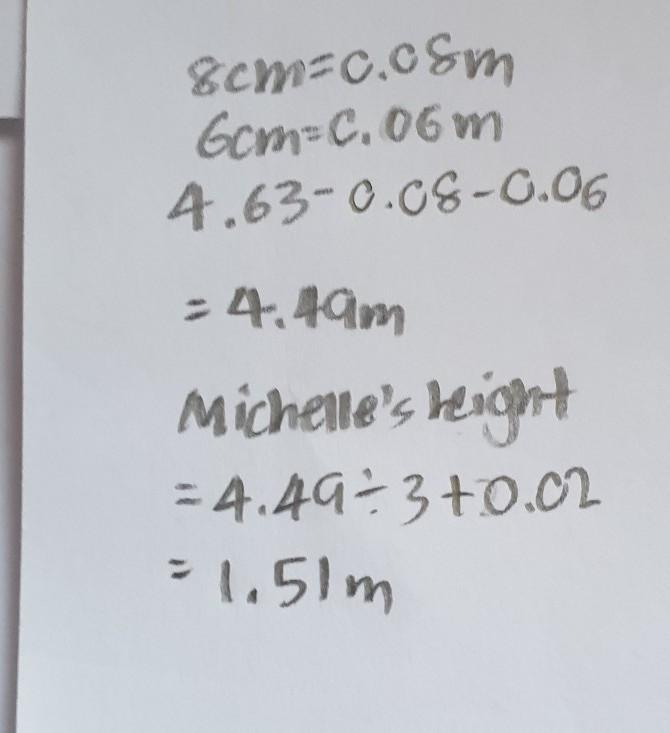 8cm=0.08m
6cm=0.06m
4.63-0.08-0.06
=4.49m
Michelle's height
=4.49÷3+0.02
=1.51m